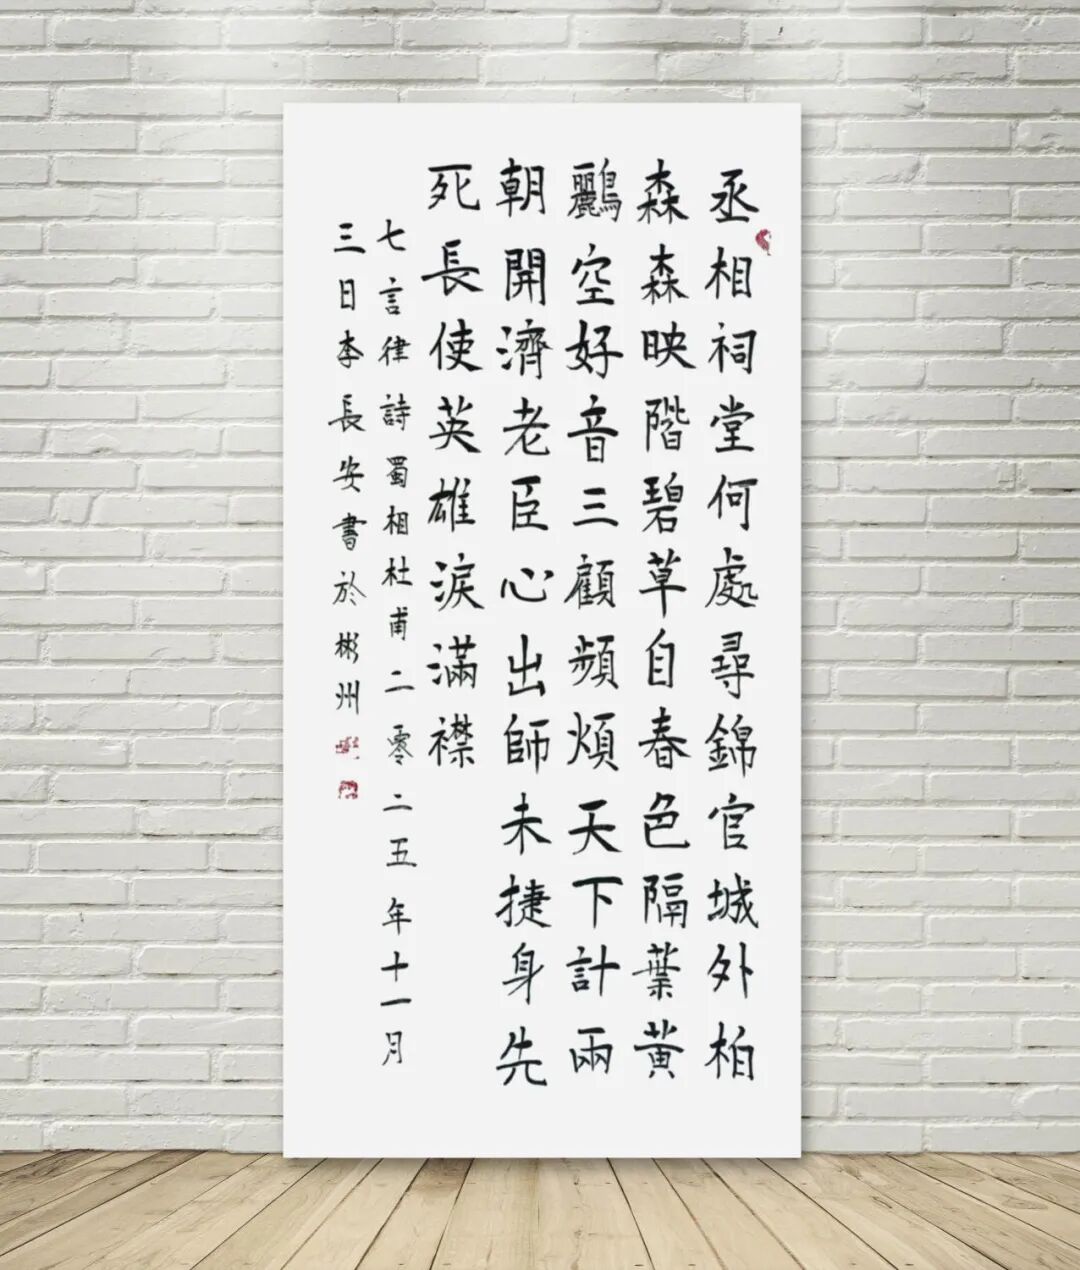 丞相祠堂何處尋錦官城外柏
森森映階碧草自春色隔葉黃
鸝空好音三顧頻煩天下計兩
朝開濟老臣心出師未捷身先
死長使英雄淚滿襟
七言律詩蜀相杜甫二零二五年十一月
三日李長安書於彬州